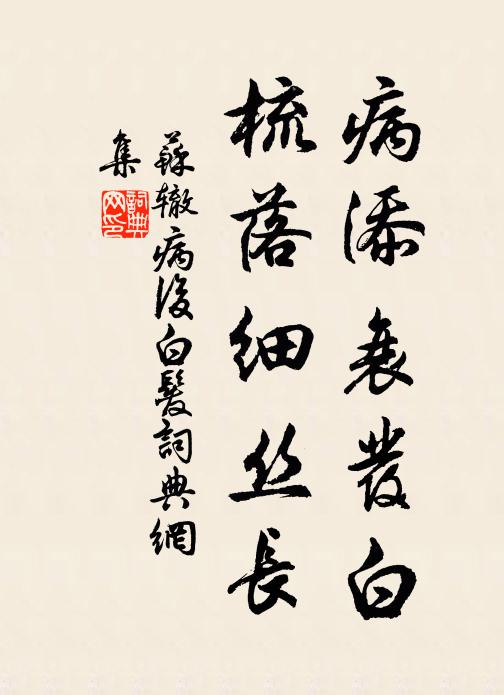 病添衰發白
梳落细丝長
蘇辙病後白髮詞典網
集
詞典
网印